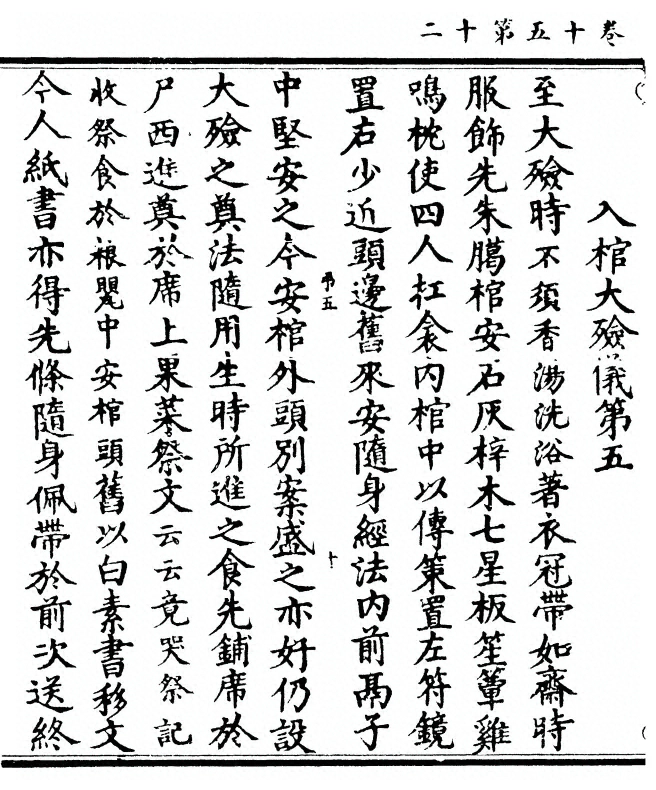 卷十五第十二
入棺大殮儀第五
至大殮時不須香湯洗浴著衣冠帶如齋時
服飾先朱臈棺安石灰梓木七星板笙簟雞
鳴枕使四人扛衾內棺中以傳策置左符鏡
置右少近頭邊舊來安隨身經法內前鬲子
中堅安之今安棺外頭別案盛之亦好仍設
弔五
十
大殮之奠法隨用生時所進之食先鋪席於
尸西進奠於席上果菜祭文云云竟哭祭記
收祭食於粮甖中安棺頭舊以白素書移文
今人紙書亦得先條隨身佩帶於前次送終